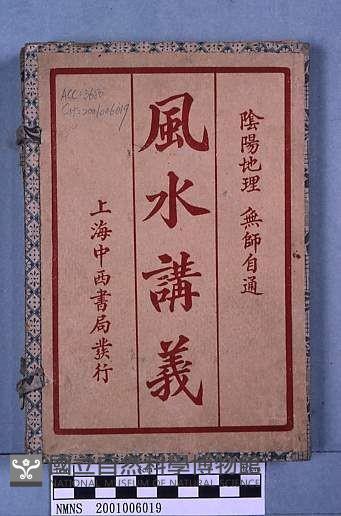 陰陽地理 無師自通
風水講義
上海中西書局發行
ACC:3650
國立自然科學博物館
NATIONAL MUSEUM OF NATURAL SCIENCE
NMNS 2001006019